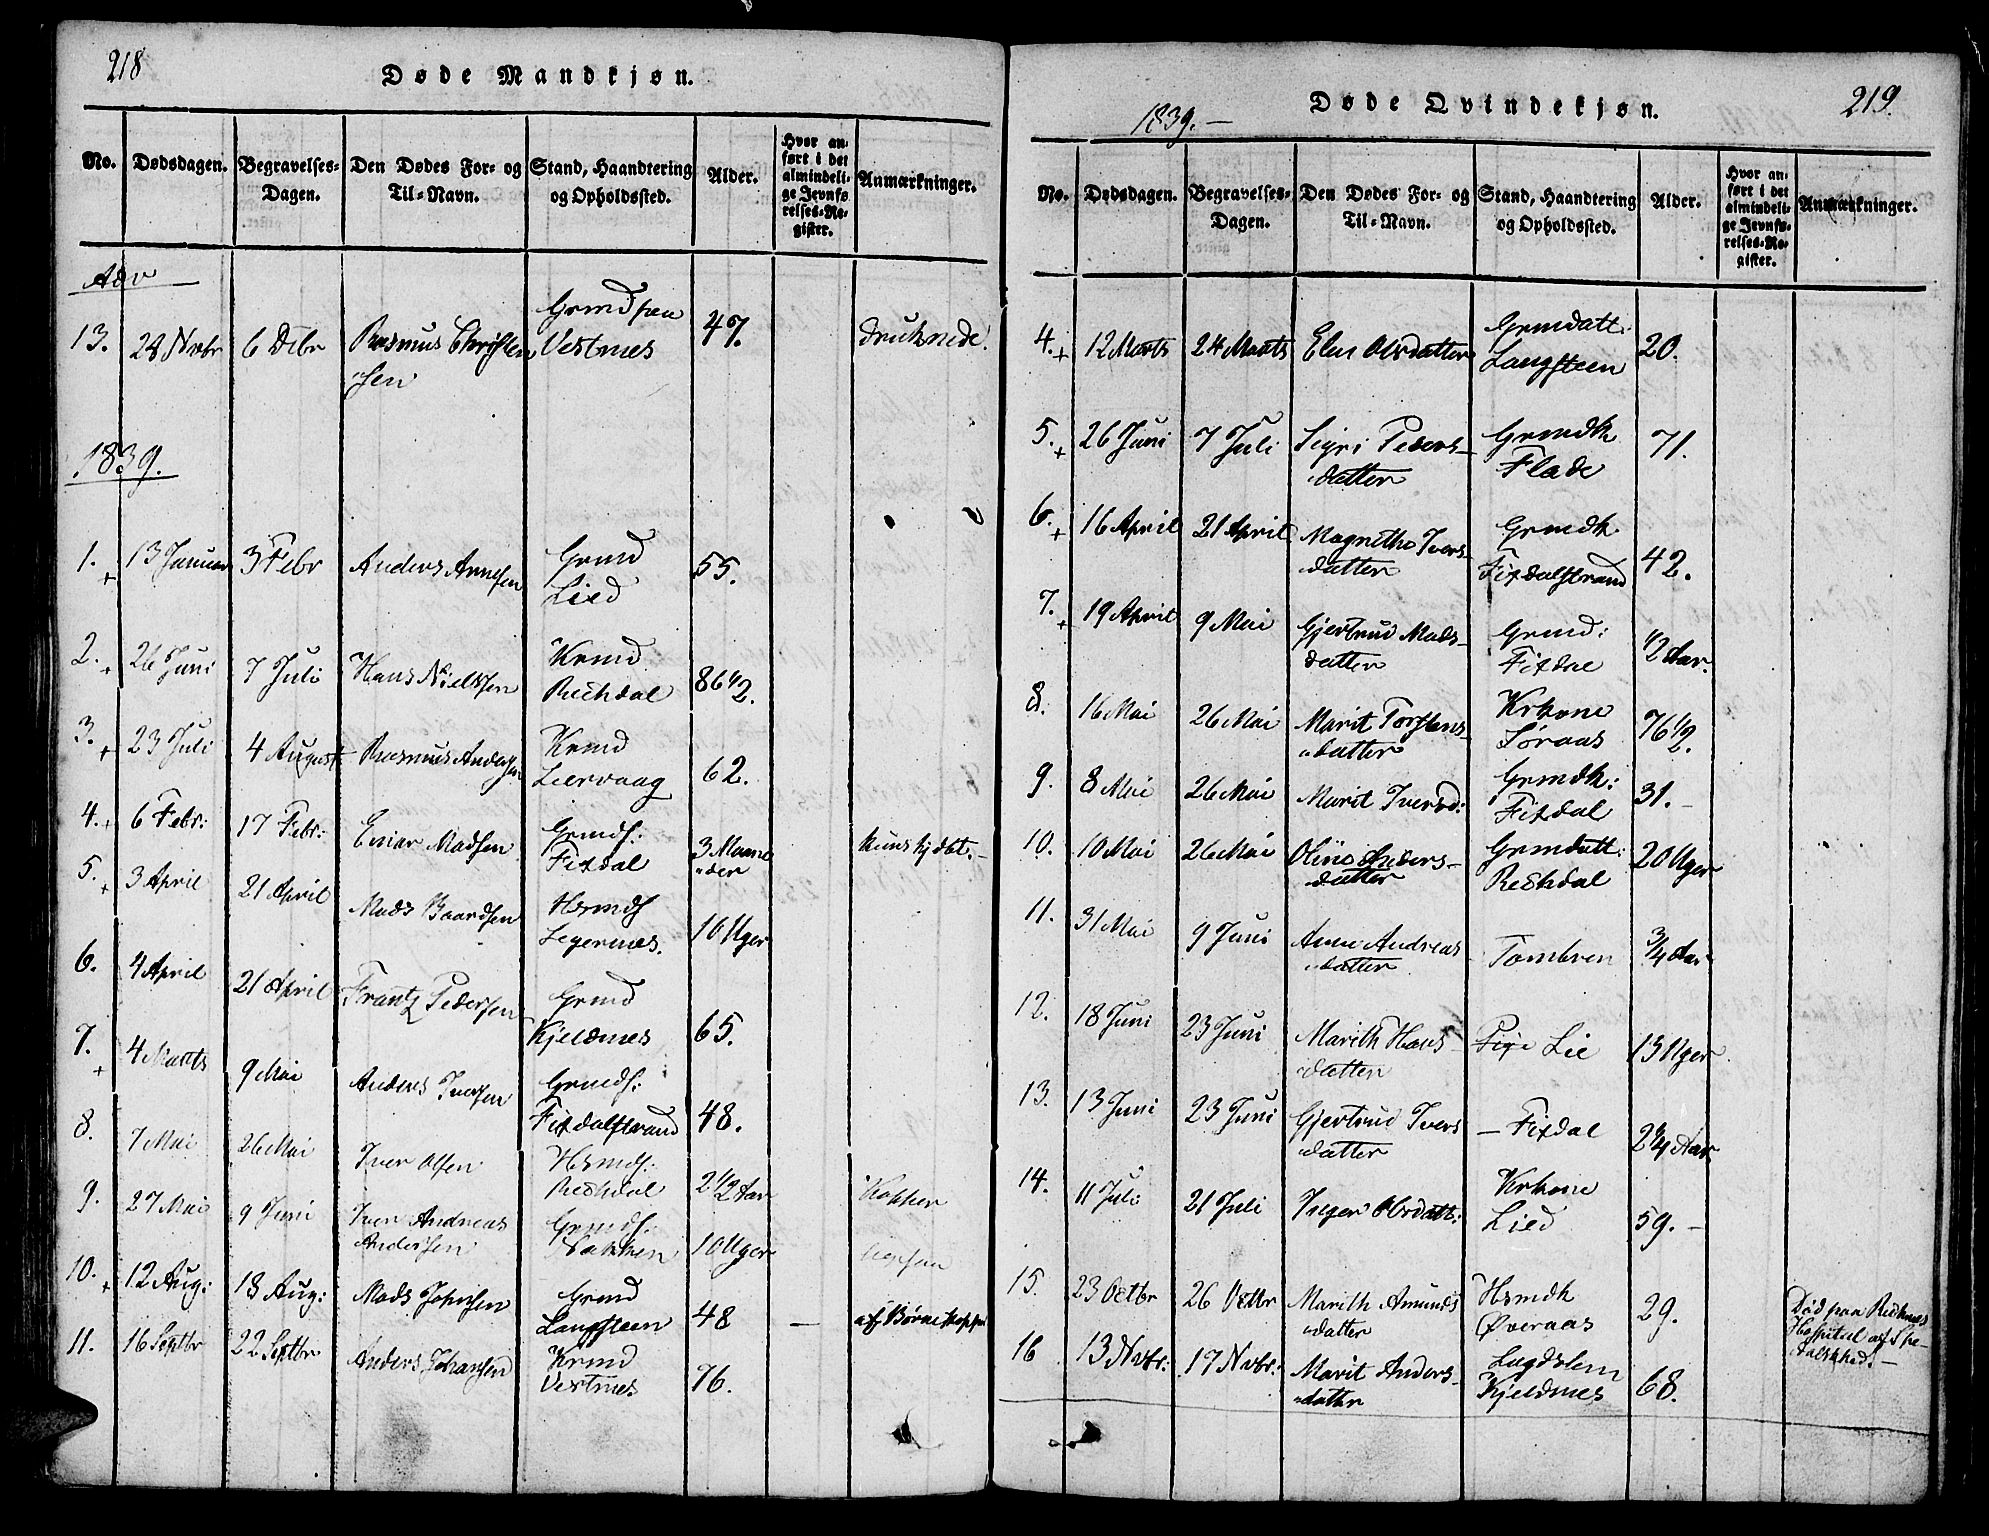 218
Døde Mandkjøn.
No. Dødsdagen. Begravelses-Dagen. Den Dødes For- og Til-Navn. Stand, Haandtering og Opholdssted. Alder. Hvor anført i det almindelige Jevnførelses-Register. Anmærkninger.
13. 28 Novbr 6 Debr Rasmus Christensen Vestnes 47. druknede.
1839.
1. + 13 Januar 3 Febr Anders Arnesen Grmd Lied 55.
2. + 26 Juni 7 Juli Hans Nielssen Krmd Rechdal 86 1/2.
3. + 23 Juli 4 August Rasmus Andersen Krmd Leirvaag 62.
4. + 6 Febr: 17 Febr: Einar Madsen Grmds: Fixdal 3 Maaneder
5. + 3 April 21 April Mads Baardsen Hsmds Legernes. 10 Uger
6. 4 April 21 April Frantz Pedersen Grmd Kjeldnes 65.
7. + 4 Marts 9 Mai Anders Iversen Grmds: Fixdalstrand 48.
8. 7 Mai 26 Mai Iver Olsen Hsmds: Rechdal 2 1/2 Aar Kopper
9. 27 Mai 9 Juni Iver Andreas Andersen Grmds: Nakken 10 Uger
10. + 12 Aug: 18 Aug: Mads Johnsen Grmd Langsteen 48 — af Børnekopper
11. 16 Septbr 22 Septbr Anders Johansen Krmd Vestnes 76.
1839.—
Døde Qvindekjøn.
219.
No. Dødsdagen. Begravelses-Dagen. Den Dødes For- og Til-Navn. Stand, Haandtering og Opholdssted. Alder. Hvor anført i det almindelige Jevnførelses-Register. Anmærkninger.
4. + 12 Marts 24 Marts Elen Olsdatter Grmdatt: Langsteen 20.
5. + 26 Juni 7 Juli Sigri Pedersdatter Grmdk Flade 71.
6. + 16 April 21 April Magrethe Iversdatter Grmdk Fixdalstrand 42.
7. + 19 April 9 Mai Gjertrud Madsdatter Grmd: Fixdal 1/2 Aar.
8. 16 Mai 26 Mai Marit Torstensdatter Krkone Søraas 76 1/2.
9. 8 Mai 26 Mai Marit Iversd: Grmdk: Fixdal 31.—
10. 10 Mai 26 Mai Oline Andersdatter Grmdatt: Rechdal 20 Uger
11. 31 Mai 9 Juni Anne Andreasdatter Tombren 3/4 Aar
12. 18 Juni 23 Juni Marith Hansdatter Pige Lie 13 Uger
13. 13 Juni 23 Juni Gjertrud Iversdatter — Fixdal 2 1/4 Aar
14. 11 Juli 21 Juli Inger Olsdatt: Krkone Lied 59.—
15. 23 Octbr 26 Octbr Marith Amundsdatter Hsmdk Øveraas 29. Død paa Reknes Hospital af Spedalskhed.—
16 13 Novbr: 17 Novbr: Marit Andersdatter Lægdslem Kjeldnes 68.